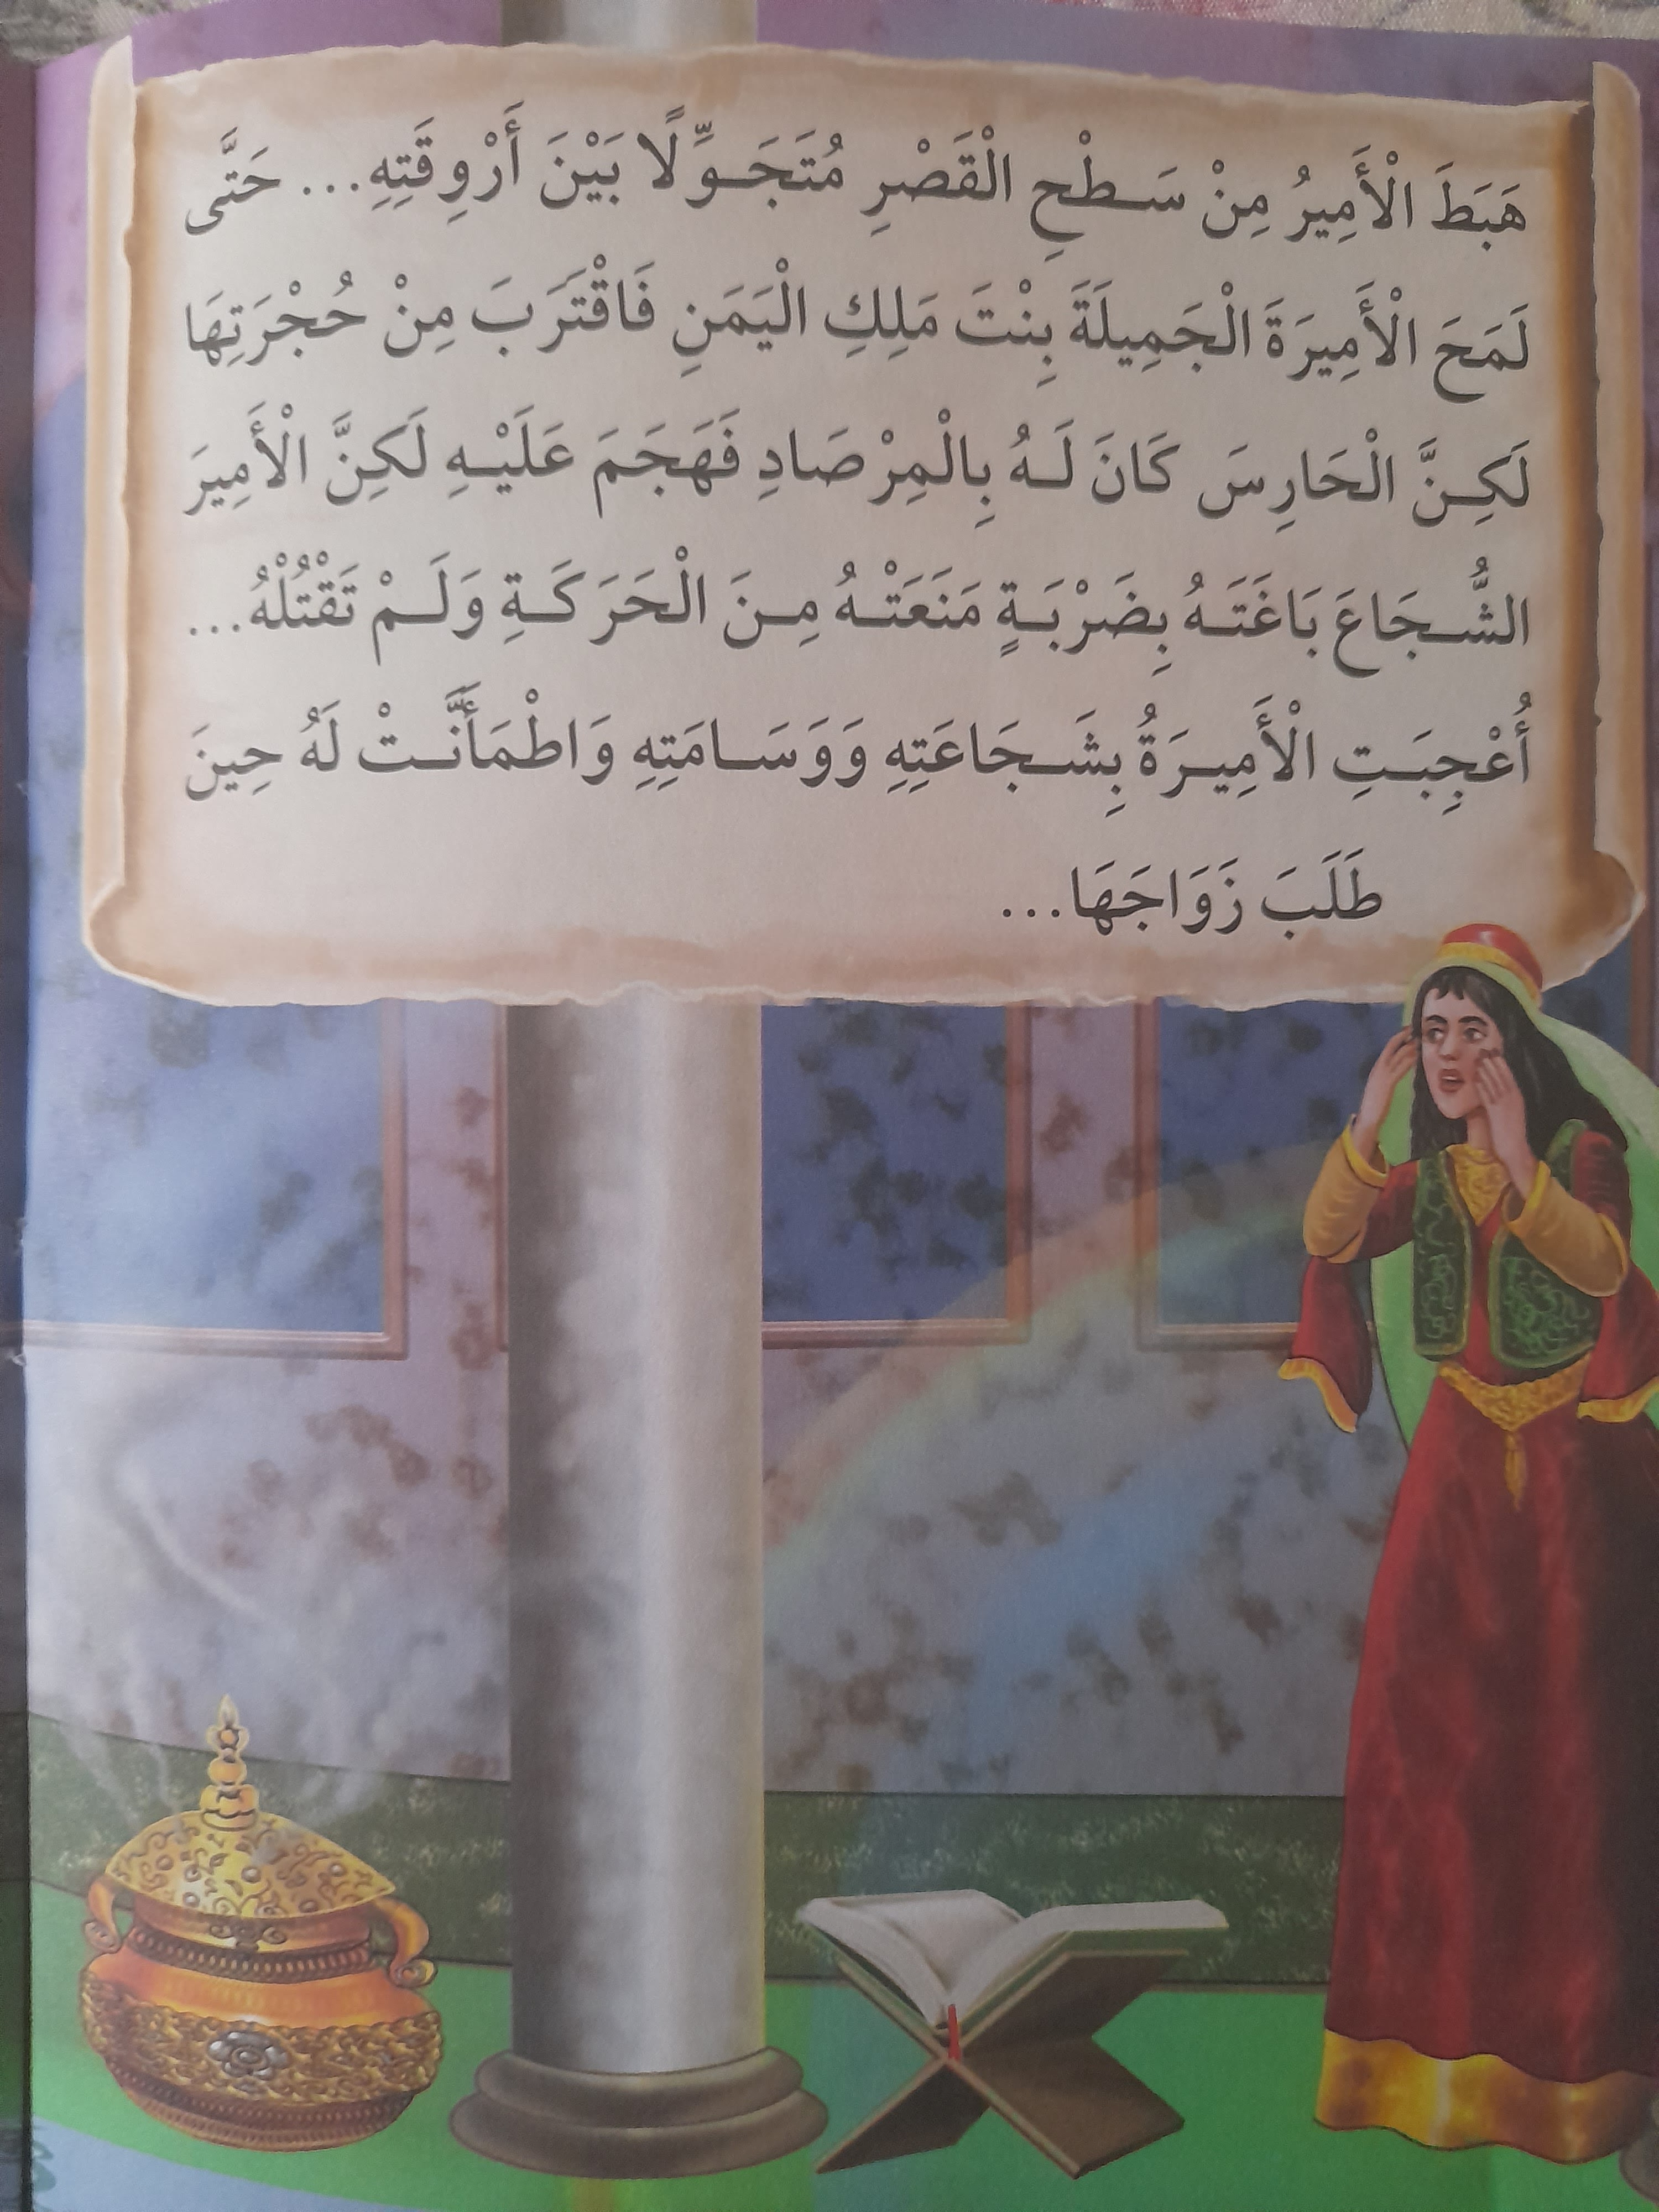 هَبَطَ الْأَمِيرُ مِنْ سَطْحِ الْقَصْرِ مُتَجَوِّلًا بَيْنَ أَرْوِقَتِهِ... حَتَّى
لَمَحَ الْأَمِيرَةَ الْجَمِيلَةَ بِنْتَ مَلِكِ الْيَمَنِ فَاقْتَرَبَ مِنْ حُجْرَتِهَا
لَكِنَّ الْحَارِسَ كَانَ لَهُ بِالْمِرْصَادِ فَهَجَمَ عَلَيْهِ لَكِنَّ الْأَمِيرَ
الشُّجَاعَ بَاغَتَهُ بِضَرْبَةٍ مَنَعَتْهُ مِنَ الْحَرَكَةِ وَلَمْ تَقْتُلْهُ...
أُعْجِبَتِ الْأَمِيرَةُ بِشَجَاعَتِهِ وَوَسَامَتِهِ وَاطْمَأَنَّتْ لَهُ حِينَ
طَلَبَ زَوَاجَهَا...